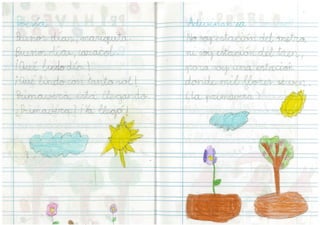 Poesía
Buenos días, marieta.
Buenos días, caracol.
¡Qué lindo día!
¡Qué lindo con tanto sol!
Primavera, está llegando.
¡Primavera! ¡Ya llegó!
Adivinanza
No soy estación del metro
ni soy estación del tren,
pero soy una estación
donde mil flores se ven.
(La primavera)